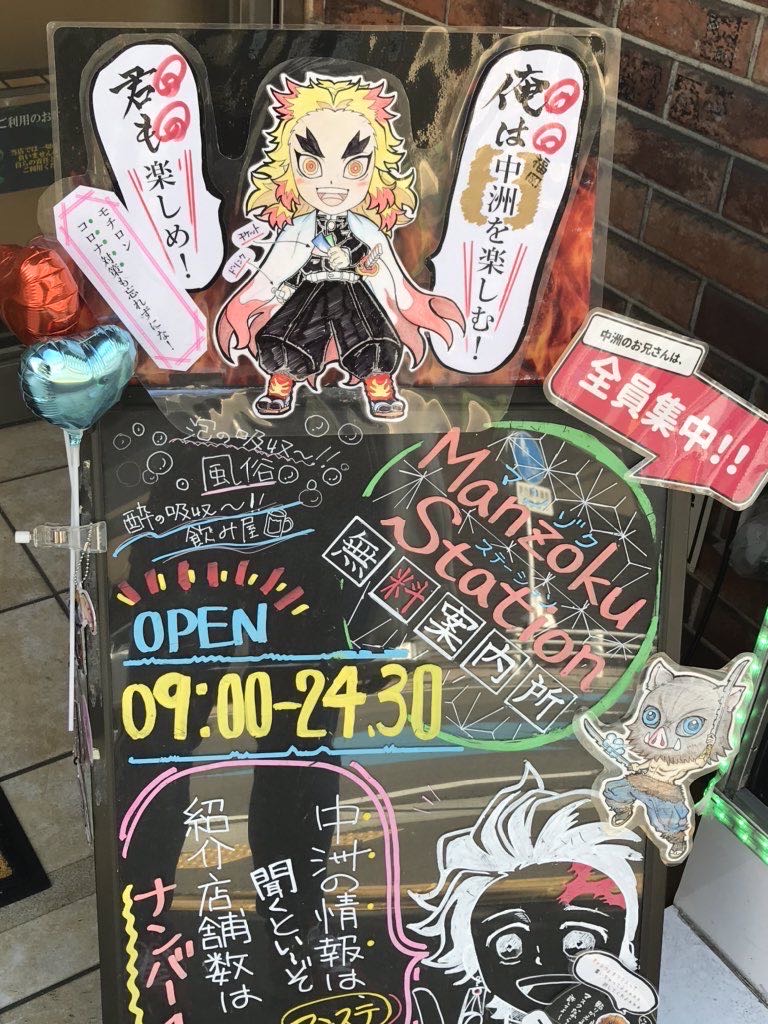 俺は
福岡
中洲を楽しむ！
君も
楽しめ！
モチロン
コロナ対策も忘れずにな！
チケット
ドリンク
ご利用のお
中洲のお兄さんは、
全員集中!!
泡の吸収〜!!
風俗
酔の吸収〜!!
飲み屋
Manzoku
Station
無料案内所
OPEN
09:00-24.30
中洲の情報は
聞くといいぞ
紹介店舗数は
ナンバー